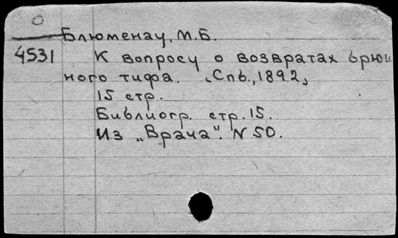 Блюменау, М.Б.
4531 К вопросу о возвратах брюш
ного тифа. Спб., 1892,
15 стр.
Библиогр. стр. 15.
Из „Врача". N 50.